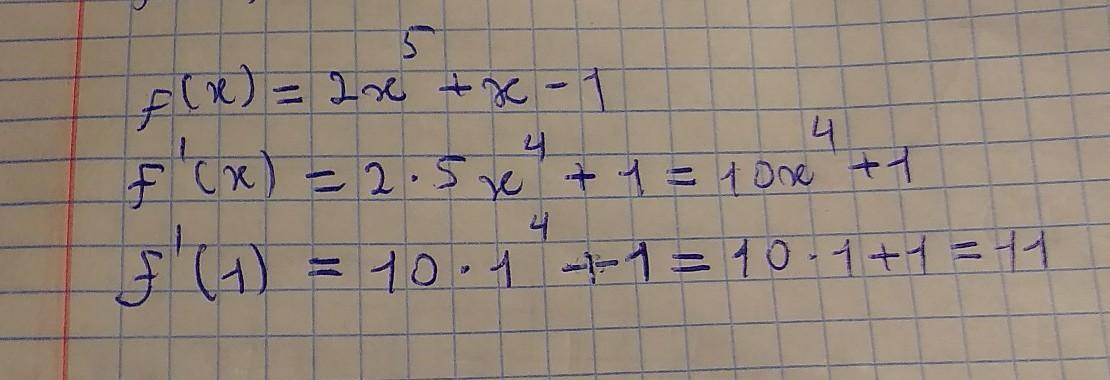 f(x) = 2x⁵ + x - 1
f'(x) = 2·5x⁴ + 1 = 10x⁴ + 1
f'(1) = 10·1⁴ + 1 = 10·1 + 1 = 11